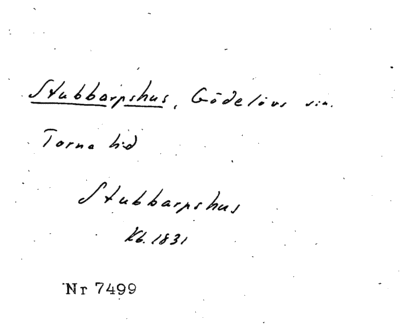 Stubbarpshus, Gödelövs sn.
Torna hd
Stubbarpshus
Kb. 1831
Nr 7499